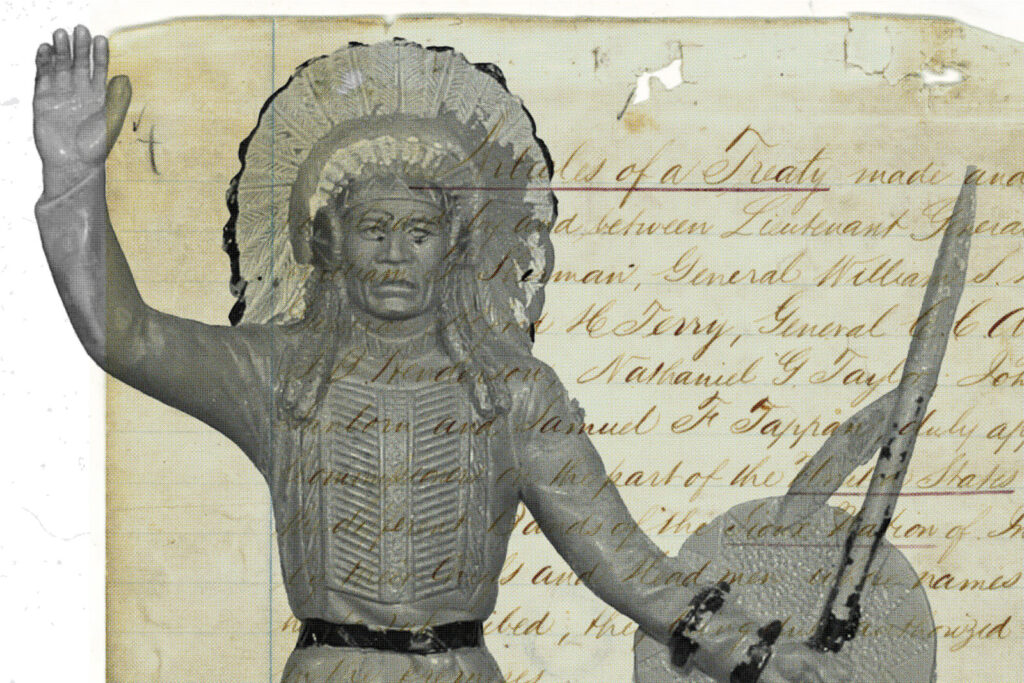 Articles of a Treaty made and
by and between Lieutenant General
William T. Sherman, General William S.
H Terry, General C C A
J. B. Henderson Nathaniel G Taylor Joh
Sanborn and Samuel F Tappan, duly app
Commissioners on the part of the United States
the different Bands of the Sioux Nation of In
by their Chiefs and Head men whose names
subscribed, they being duly authorized
in the premises.